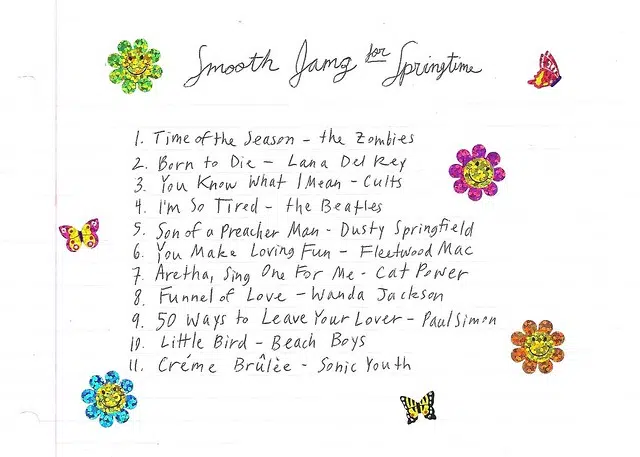 Smooth Jamz for Springtime
1. Time of the Season - the Zombies
2. Born to Die - Lana Del Rey
3. You Know What I Mean - Cults
4. I'm So Tired - the Beatles
5. Son of a Preacher Man - Dusty Springfield
6. You Make Loving Fun - Fleetwood Mac
7. Aretha, Sing One For Me - Cat Power
8. Funnel of Love - Wanda Jackson
9. 50 Ways to Leave Your Lover - Paul Simon
10. Little Bird - Beach Boys
11. Créme Brûlèe - Sonic Youth